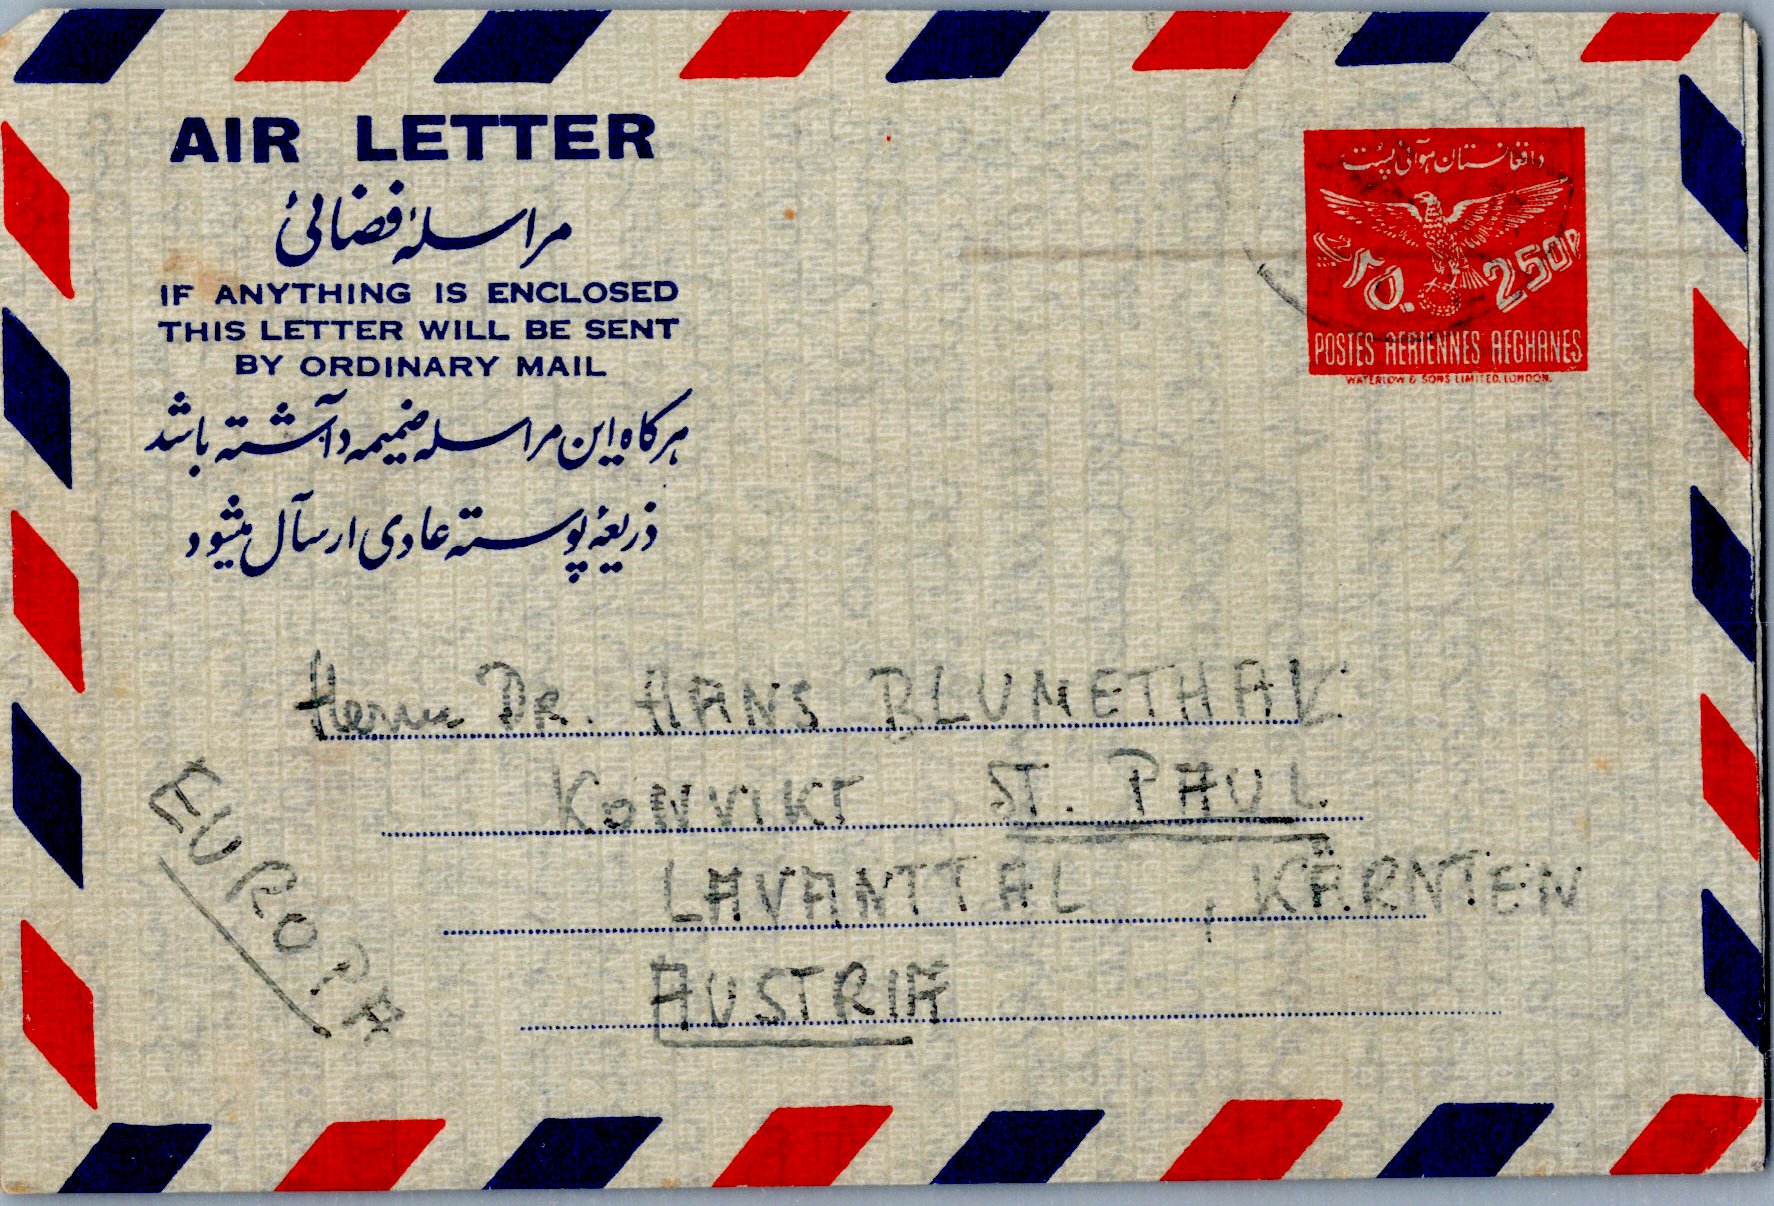 AIR LETTER
مراسلهٔ فضائی
IF ANYTHING IS ENCLOSED
THIS LETTER WILL BE SENT
BY ORDINARY MAIL
هرکاه این مراسله ضمیمه داشته باشد
ذریعهٔ پوسته عادی ارسال میشود
دافغانستان هوائی پست
۲۵۰ 250P
POSTES AERIENNES AFGHANES
WATERLOW & SONS LIMITED, LONDON.
Herrn DR. HANS BLUMETHAL
KONVIKT ST. PAUL
LAVANTTAL, KÄRNTEN
AUSTRIA
EUROPA